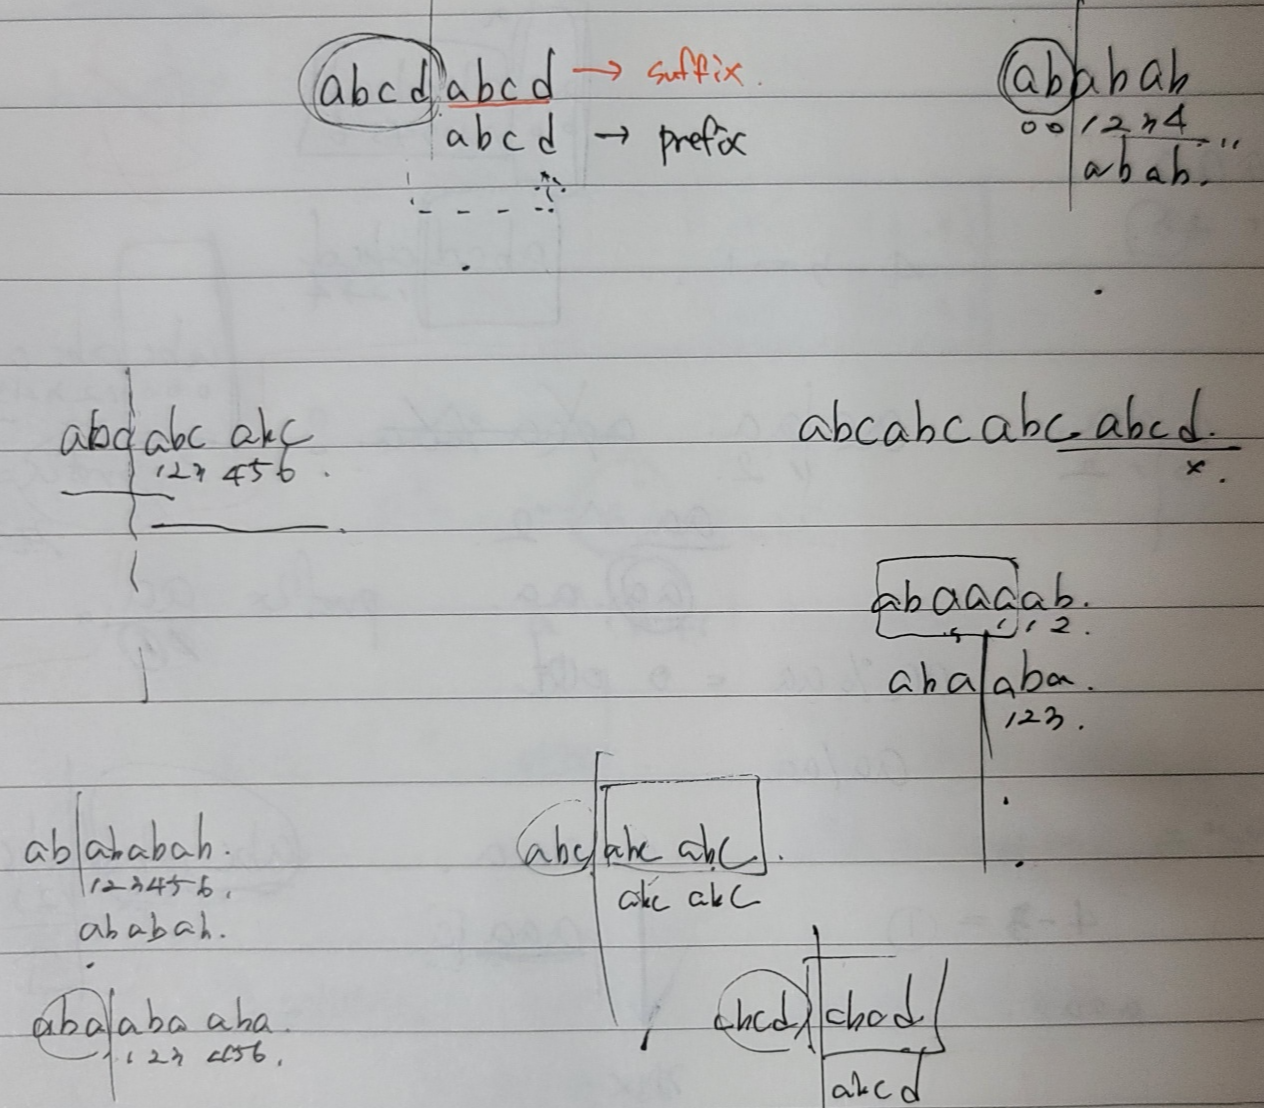 abcd abcd → suffix.
abcd → prefix
ababab
00 1234
abab.
abc abc abc
123 456.
abcabcabcabcd.
x.
abaaaab.
1 1 2.
aba aba.
123.
ab ababab.
123456.
ababab.
abc abc abc.
abc abc
aba aba aba.
123 456.
abcd abcd
abcd